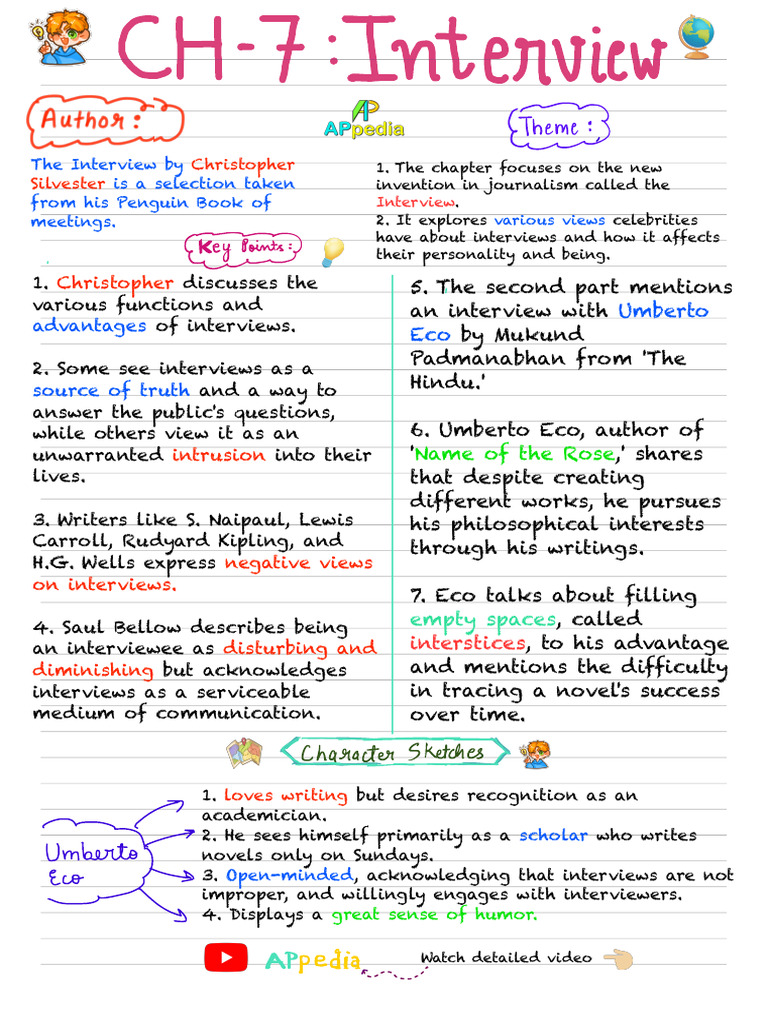 CH-7: Interview
Author:
APpedia
Theme:
The Interview by Christopher
Silvester is a selection taken
from his Penguin Book of
meetings.
1. The chapter focuses on the new
invention in journalism called the
Interview.
2. It explores various views celebrities
have about interviews and how it affects
their personality and being.
Key Points:
1. Christopher discusses the
various functions and
advantages of interviews.
2. Some see interviews as a
source of truth and a way to
answer the public's questions,
while others view it as an
unwarranted intrusion into their
lives.
3. Writers like S. Naipaul, Lewis
Carroll, Rudyard Kipling, and
H.G. Wells express negative views
on interviews.
4. Saul Bellow describes being
an interviewee as disturbing and
diminishing but acknowledges
interviews as a serviceable
medium of communication.
5. The second part mentions
an interview with Umberto
Eco by Mukund
Padmanabhan from 'The
Hindu.'
6. Umberto Eco, author of
'Name of the Rose,' shares
that despite creating
different works, he pursues
his philosophical interests
through his writings.
7. Eco talks about filling
empty spaces, called
interstices, to his advantage
and mentions the difficulty
in tracing a novel's success
over time.
Character Sketches
Umberto
Eco
1. Loves writing but desires recognition as an
academician.
2. He sees himself primarily as a scholar who writes
novels only on Sundays.
3. Open-minded, acknowledging that interviews are not
improper, and willingly engages with interviewers.
4. Displays a great sense of humor.
APpedia
Watch detailed video